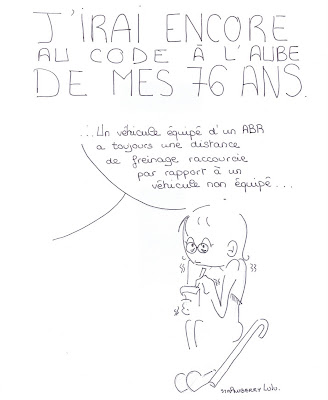 J'IRAI ENCORE
AU CODE À L'AUBE
DE MES 76 ANS.
... Un véhicule équipé d'un ABR
a toujours une distance
de freinage raccourcie
par rapport à un
véhicule non équipé...
STRAWBERRY LULU.